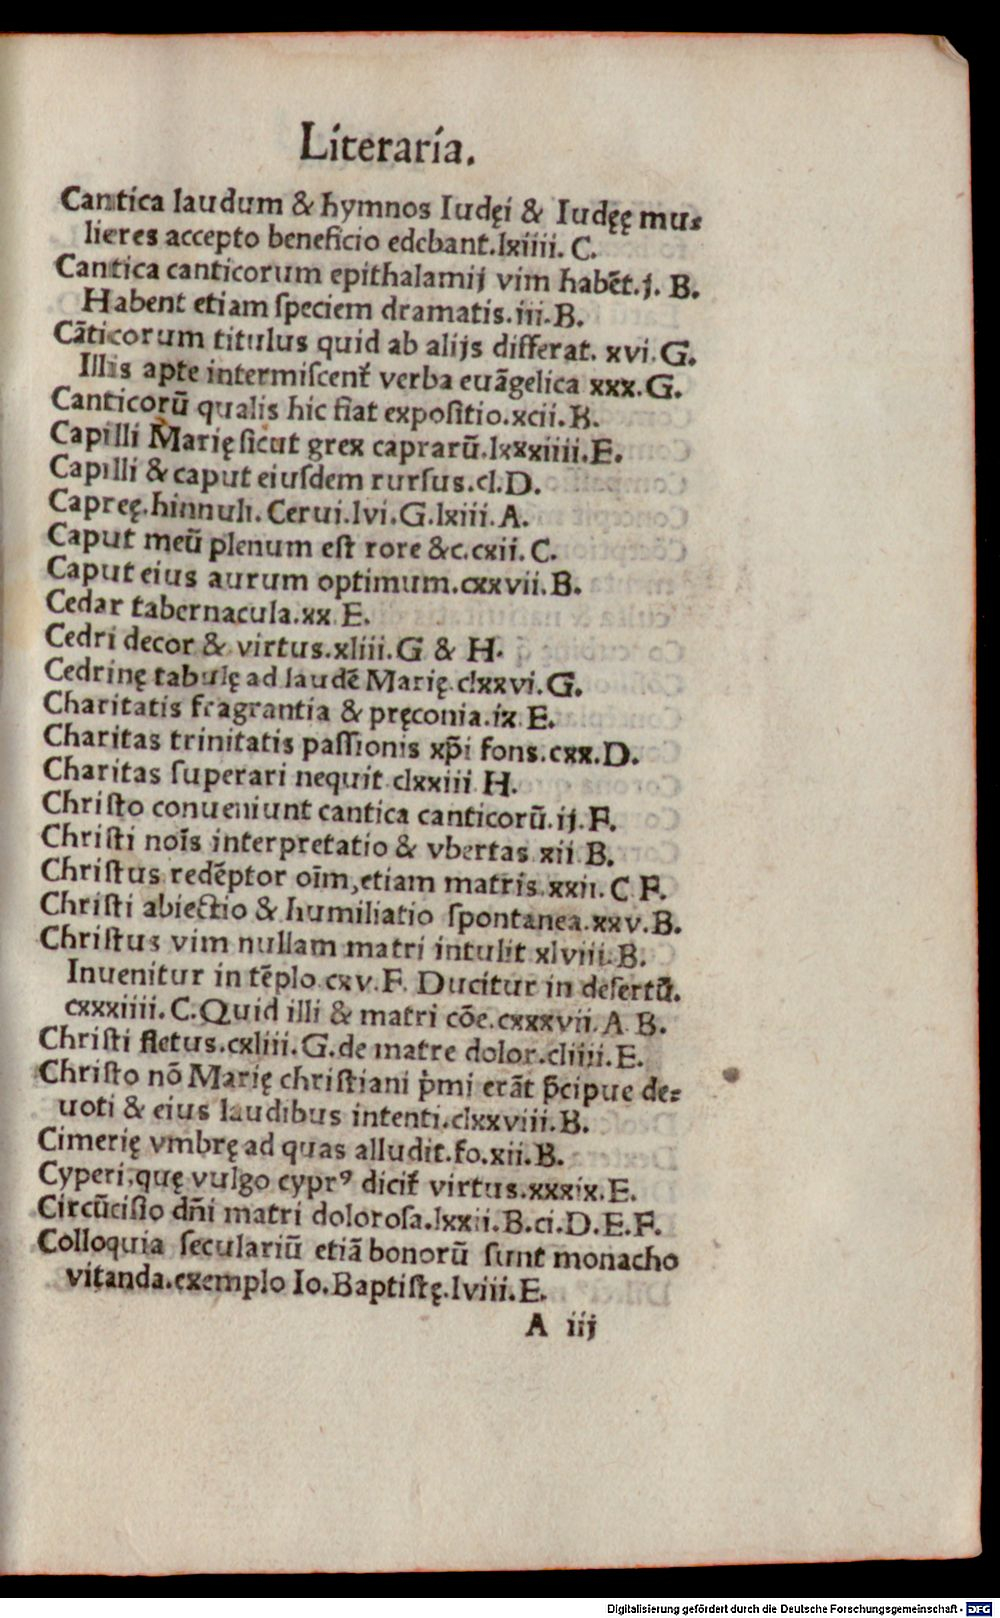 Literaria.
Cantica laudum & hymnos Iudęi & Iudęę mu⸗
lieres accepto beneficio edebant.lxiiii. C.
Cantica canticorum epithalamij vim habēt.j. B.
Habent etiam ſpeciem dramatis.iii.B.
Cāticorum titulus quid ab alijs differat. xvi.G.
Illis apte intermiſcent᷑ verba euāgelica xxx.G.
Canticorū qualis hic fiat expoſitio.xcii.B.
Capilli Marię ſicut grex caprarū.lxxxiiii.E.
Capilli & caput eiuſdem rurſus.cl.D.
Capreę.hinnuli. Cerui.lvi.G.lxiii.A.
Caput meū plenum eſt rore &c.cxii.C.
Caput eius aurum optimum.cxxvii.B.
Cedar tabernacula.xx E.
Cedri decor & virtus.xliii.G & H.
Cedrinę tabulę ad laudē Marię.clxxvi.G.
Charitatis fragrantia & pręconia.ix.E.
Charitas trinitatis paſſionis xp̄i fons.cxx.D.
Charitas ſuperari nequit clxxiii H.
Chriſto conueniunt cantica canticorū.ij.F.
Chriſti noīs interpretatio & vbertas xii B.
Chriſtus redēptor oīm,etiam matris.xxii.C F.
Chriſti abiectio & humiliatio ſpontanea.xxv.B.
Chriſtus vim nullam matri intulit xlviii.B.
Inuenitur in tēplo cxv.F. Ducitur in deſertū.
cxxxiiii.C.Quid illi & matri cōe.cxxxvii.A B.
Chriſti fletus.cxliii.G.de matre dolor.cliiii.E.
Chriſto nō Marię chriſtiani p̍mi erāt p̄cipue de⸗
uoti & eius laudibus intenti.clxxviii.B.
Cimerię vmbrę ad quas alludit.fo.xii.B.
Cyperi,quę vulgo cyprꝰ dicit᷑ virtus.xxxix.E.
Circūciſio dn̄i matri doloroſa.lxxii.B.ci.D.E.F.
Colloquia ſeculariū etiā bonorū ſunt monacho
vitanda.exemplo Io.Baptiſtę.lviii.E.
A iij
Digitalisierung gefördert durch die Deutsche Forschungsgemeinschaft - DFG